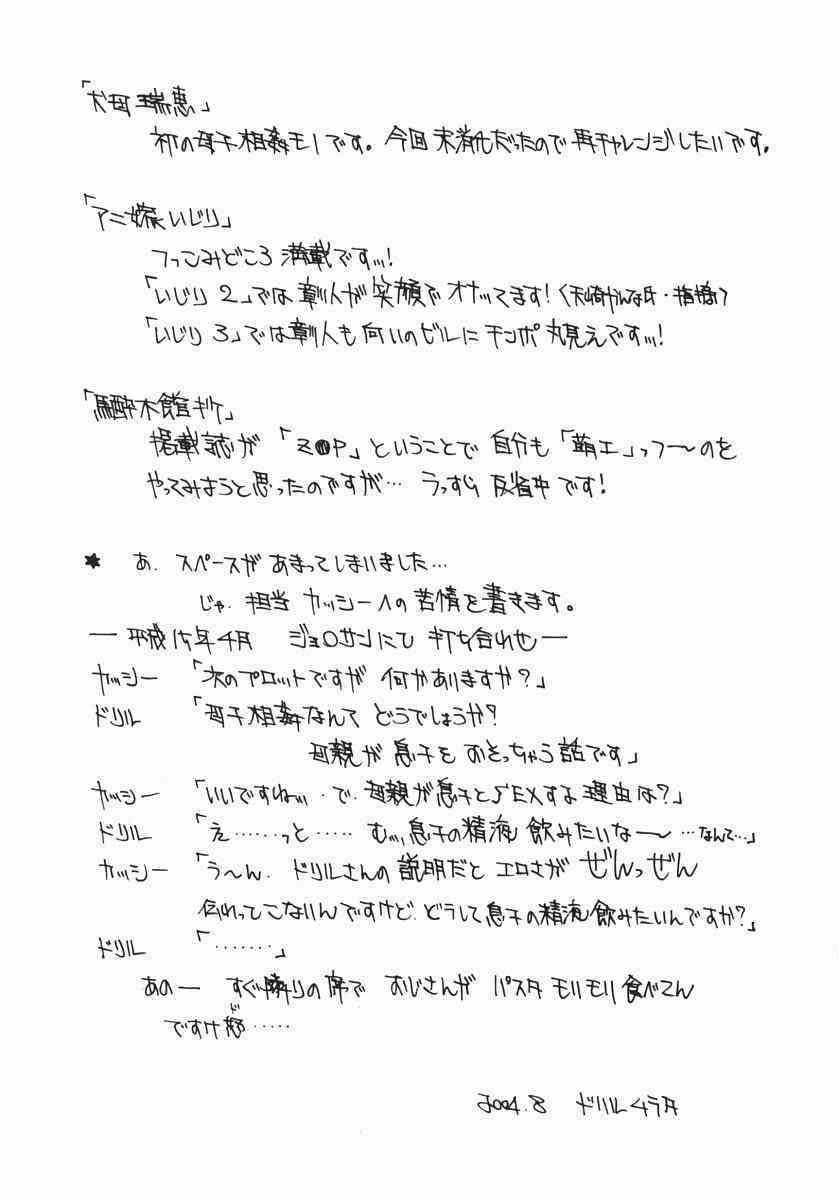 「犬母 瑞恵」
初の母子相姦モノです。今回 未消化だったので 再チャレンジしたいです。
「アニ嫁いじり」
つっこみどころ 満載ですッ!
「いじり 2」では 彰人が 笑顔で オナってます! (天崎かんな氏・指摘)
「いじり 3」では彰人も 向いのビルに チンポ 丸見えですッ!
「馬酔木館 」
掲載誌が 「Z●P」ということで 自分も 「萌エ」っつ〜のを
やってみようと思ったのですが… うっすら 反省中です!
★ あ. スペースが あまってしまいました…
じゃ. 担当 カッシーへの 苦情を書きます。
― 平成 年 4月 ジョ○サンにて 打ち合わせ ―
カッシー 「次のプロットですが 何かありますか?」
ドリル 「母子相姦なんて どうでしょうか?
母親が 息子を おそっちゃう話です」
カッシー 「いいですねッ ・で. 母親が息子とSEXする理由は?」
ドリル 「え……っと…… むッ, 息子の精液 飲みたいな〜 …なんて…」
カッシー 「う〜ん. ドリルさんの 説明だと エロさが ぜんっぜん
伝わってこないんですけど. どうして息子の精液飲みたいんですか?」
ドリル 「・・・・・・・」
あのー すぐ隣りの席で おじさんが パスタ モリモリ食べてん
ですけど……
2004.8 ドリルムラタ